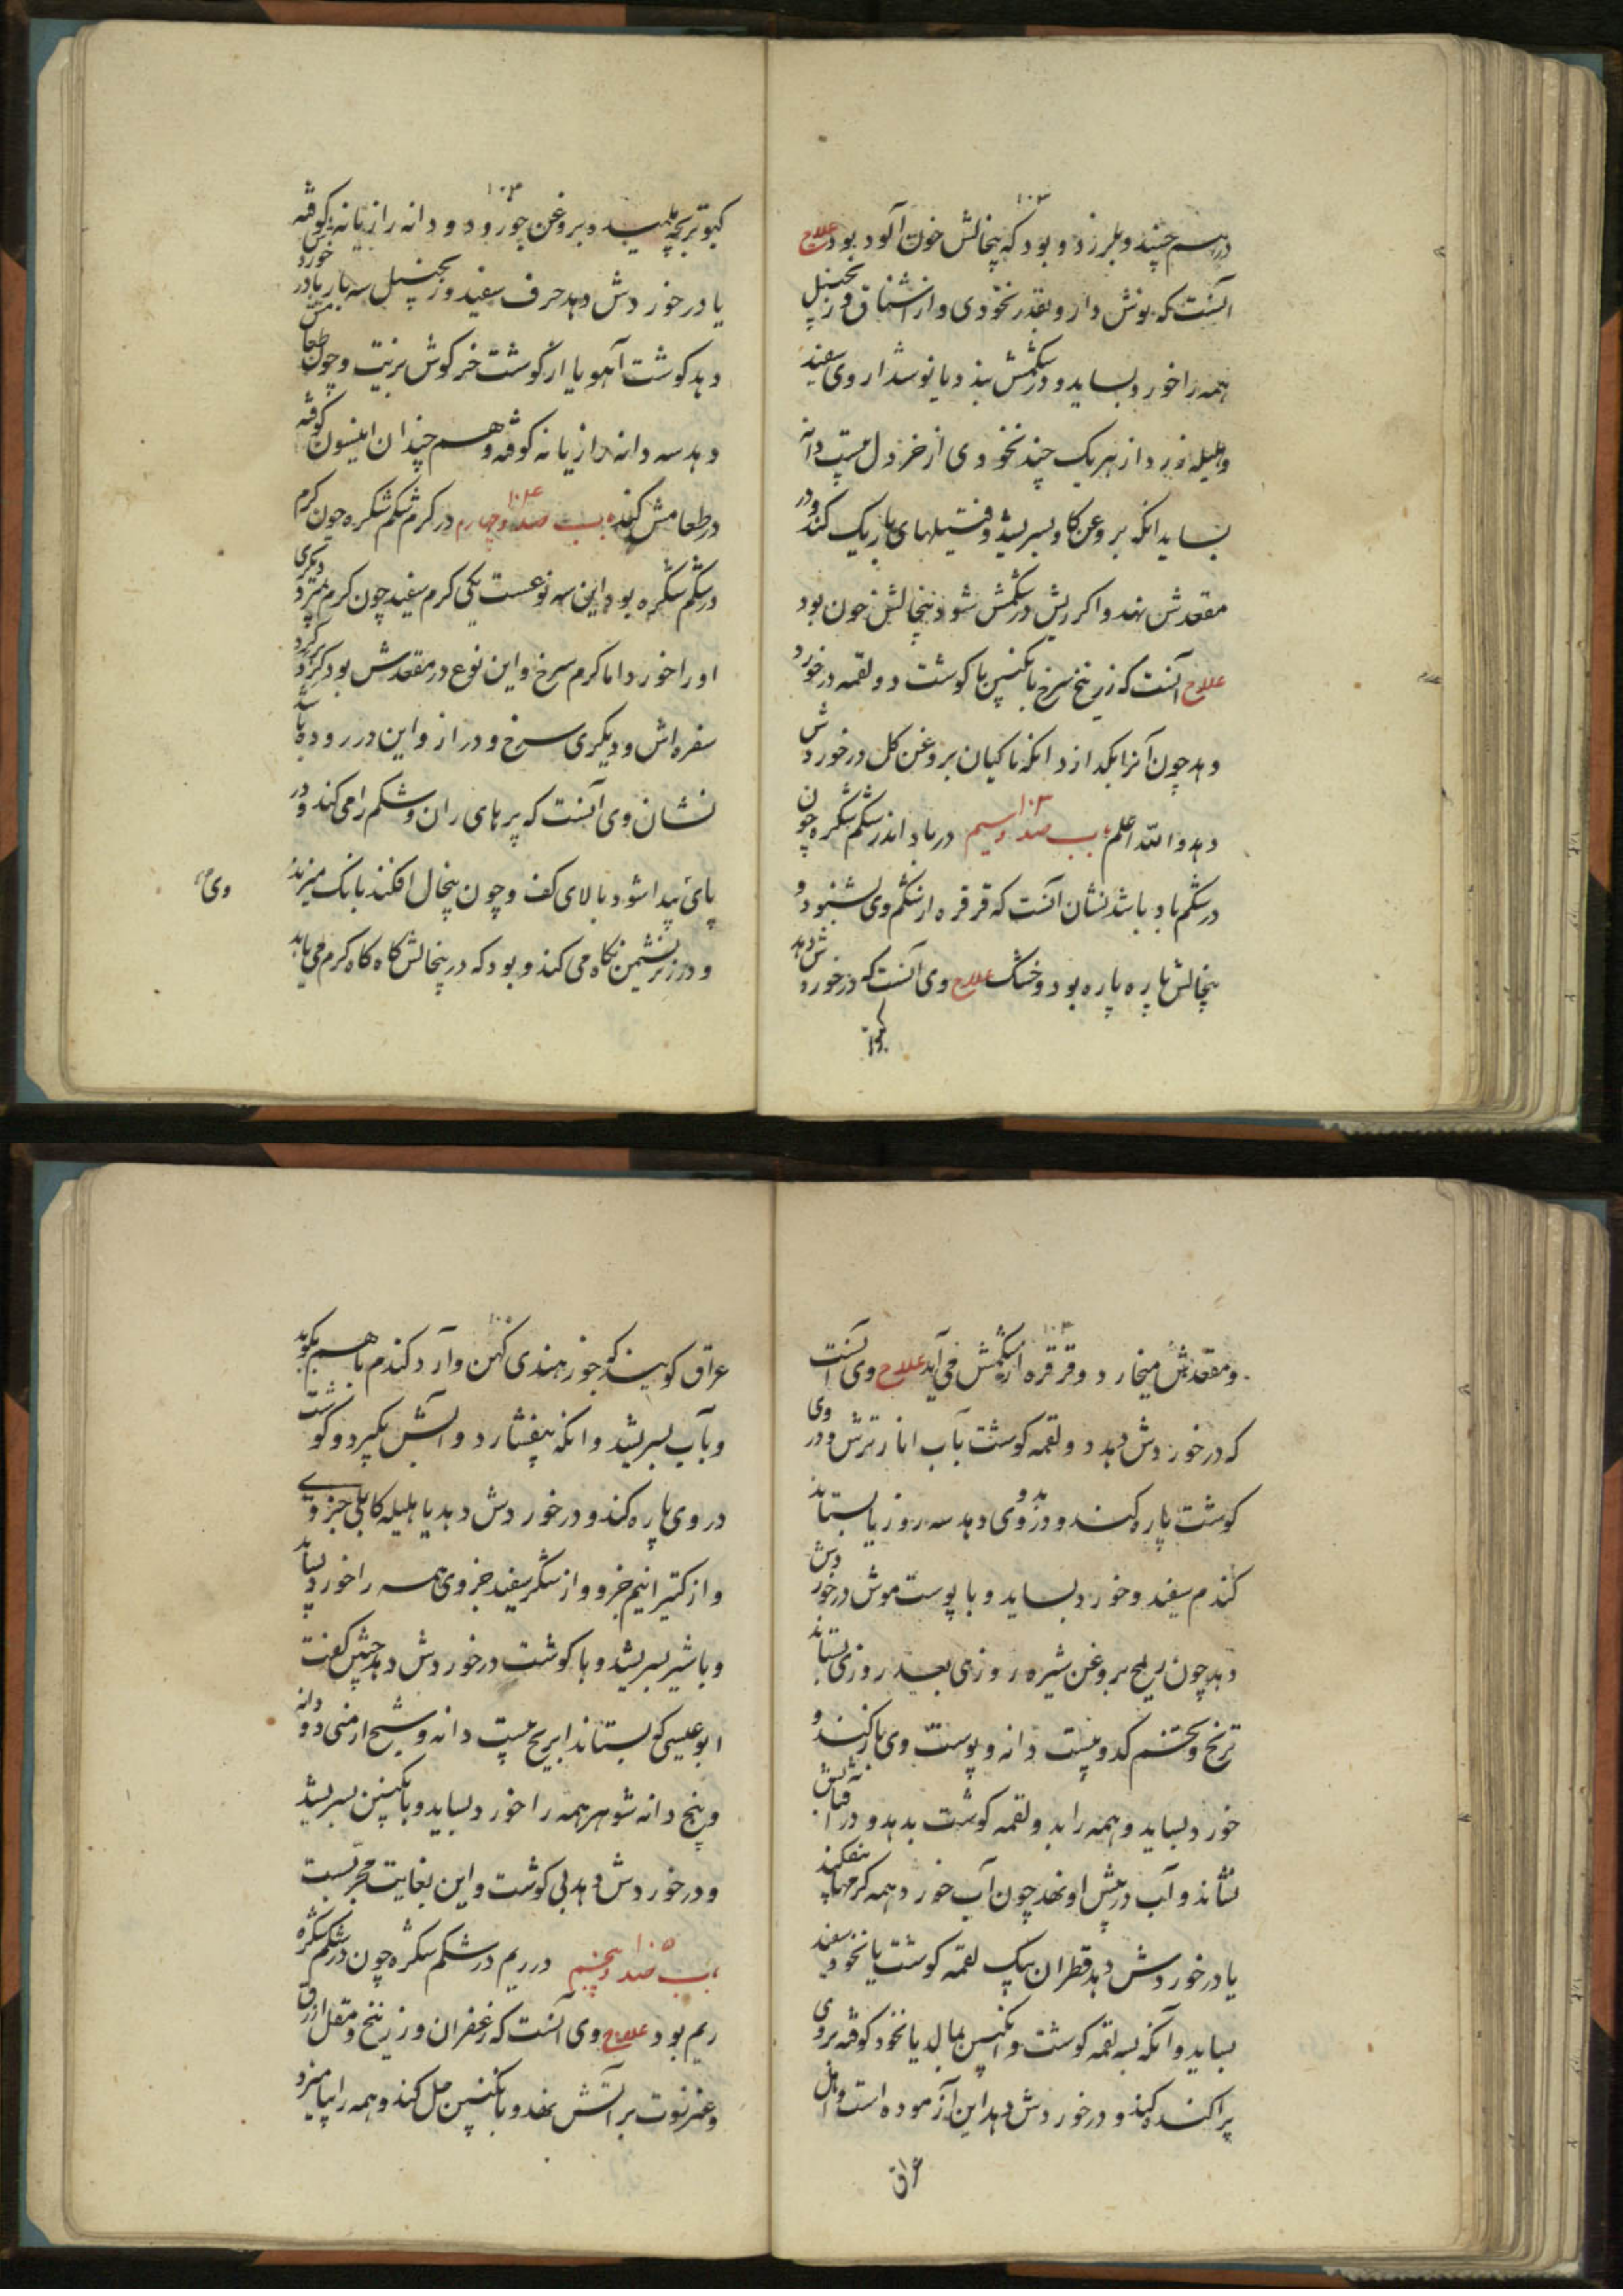 ۱۰۳
درهم چیند و بلرزد و بود که پیخالش خون آلود بود علاج
آنست که نوش دارو بقدر نخودی و از اشناق و زنجبیل
همه را خورد بساید و در شکمش بندد یا نوشدار وی سفید
وهلیله زرد از هریک چند نخودی از خردل بیست دانه
بساید انکه بروغن کاو بسریشد و فتیلهای باریک کند و در
مقعدش نهد و اکر ریش در شکمش شود پیخالش خون بود
علاج آنست که زرنیخ سرخ بانکبین با کوشت دو لقمه در خورد
دهد چون آنرا بکدازد انکه ماکیان بروغن کل در خوردش
دهد والله اعلم باب صد و سیم ۱۰۳ در باد اندر شکم شکره چون
در شکم باد باشد نشان آنست که قرقره از شکم وی بشنود و
پیخالش پاره پاره بود و خشک علاج وی آنست که در خوردش دهد
کبوتر
۱۰۴
کبوتر بچه پلیسد و بروغن جوز و دو دانه رازیانه کوفته
یا در خوردش دهد حرف سفید و زنجبیل سه بار یا در خوردش
دهد کوشت آهو یا از کوشت خرکوش بزیت و چون طعامش
دهد سه دانه رازیانه کوفته و هم چندان انیسون کوفته
در طعامش کند باب صد و چهارم ۱۰۴ در کرم شکم شکره چون کرم
در شکم شکره بود این سه نوعست یکی کرم سفید چون کرم پنیر و دیکری
او را خورد اما کرم سرخ و این نوع در مقعدش بود کرد بر کرد
سفره اش و دیکری سرخ و دراز و این در روده باشد
نشان وی آنست که پرهای ران و شکم را می کند و در
پای پیدا شود بالای کف و چون پیخال افکند بانک میزند
وی
و در زیر نشیمن نکاه می کند و بود که در پیخالش کاه کاه کرم می یابد
۱۰۴
و مقعدش میخارد و قرقره از شکمش می آید علاج وی آنست
که در خوردش دهد دو لقمه کوشت بآب انار ترش و در وی
کوشت پاره کند و در وی دهد سه روز یا بستاند
کندم سفید و خورد بساید و با پوست موش در خوردش
دهد چون بریح بروغن شیره روزی بعد روزی بستاند
ترنج و تخم کدو بیست دانه و پوست وی باز کند و
خورد بساید و همه را بدو لقمه کوشت بدهد و در آفتابش
نشاند و آب در پیش او نهد چون آب خورد همه کرمها بیفکند
یا در خوردش دهد قطران بیک لقمه کوشت یا نخود سفید
بساید و آنکه بسه لقمه کوشت و انکبین بمالد یا نخود کوفته بر وی
پراکنده کند و در خوردش دهد این آزموده است و اهل
عراق
عراق کویند که جوز هندی کهن و آرد کندم با هم بکوبد
و بآب بسریشد و انکه بیفشارد و آبش بکیرد و کوشت
در وی پاره کند و در خوردش دهد یا هلیله کابلی جزوی
و از کتیرا نیم جزو و از شکر سفید جزوی همه را خورد بساید
و با شیر بسریشد و با کوشت در خوردش دهد چنین کفت
ابو عیسی کو بستاند ابریج بیست دانه و شیح ارمنی دو دانه
و پنج دانه شوهر همه را خورد بساید و بانکبین بسریشد
و در خوردش دهد بی کوشت و این بغایت مجربست
باب صد و پنجم ۱۰۵ در ریم در شکم شکره چون در شکم شکره
ریم بود علاج وی آنست که زعفران و زرنیخ و مقل ازرق
و عنزروت بر آتش نهد و بانکبین حل کند و همه را بیامیزد